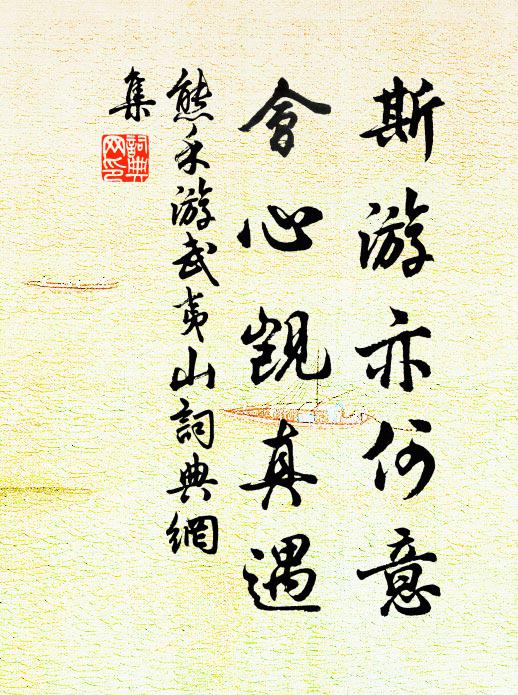 斯游亦何意
會心覬真遇
熊禾游武夷山詞典網
集
詞典
网印